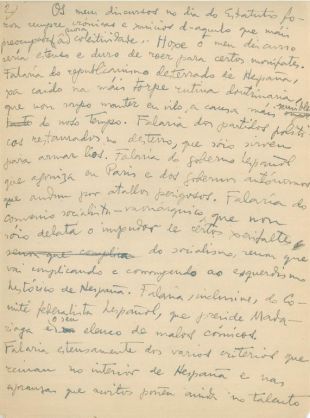 2) Os meus discursos no día do Estatuto fo-
ron sempre crónicas e xuicios d-aquilo que mais
preocupou á nosa colectividade. Hoxe o meu discurso
sería etenso e duro de roer para certos manifestes.
Falaría do republicanismo desterrado de Hespaña,
xa caído na mais torpe rutina doutrinaria,
que non supo manter eu vilo, a causa mais
de noso tempo. Falaría dos partidos políti-
cos restaurados no desterro, que sóio sirven
para armar líos. Falaría do goberno español
que agoniza en París e dos gobernos autónomos
que andan por atallos perigosos. Falaría do
convenio socialista-monárquico, que non
sóio delata o impudor de certos xerifaltes
do socialismo, senon que
vai complicando e corrompendo ao esquerdismo
histórico de Hespaña. Falaría, inclusive, do Co-
mité federalista hespañol, que preside Mada-
riaga e o seu elenco de malos cómicos.
Falaría etensamente dos varios criterios que
reinan no interior de Hespaña e nas
espranzas que moitos poñen ainda no talento